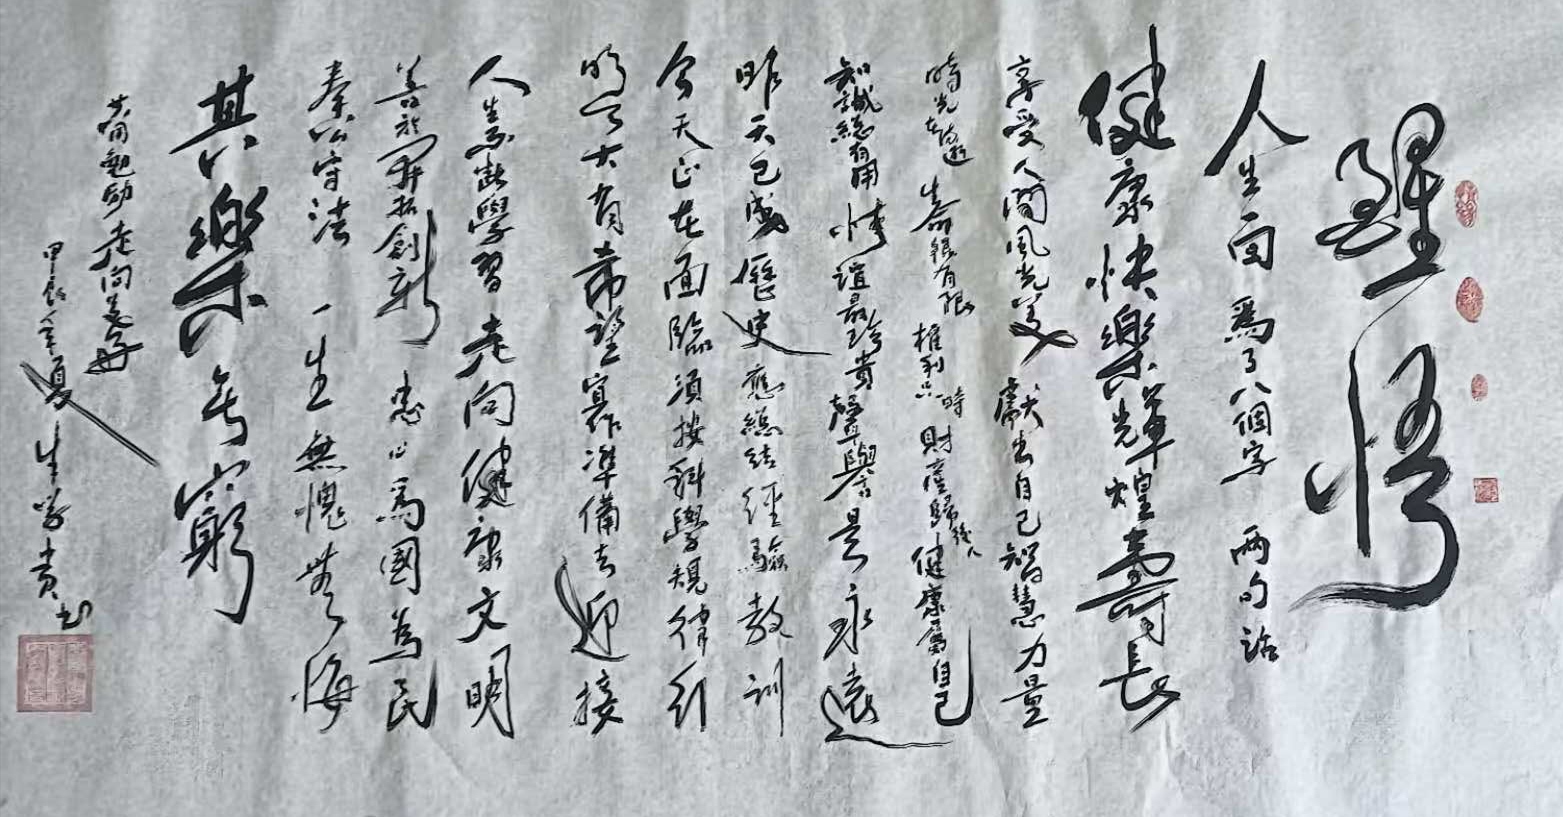 醒悟
人生面爲了八個字 两句話
健康快樂輝煌壽長
享受人间風光美 獻出自己智慧力量
時光在流逝 生命很有限 權利只一時 財產歸後人 健康屬自己
知識総有用 情誼最珍貴 聲譽是永遠
昨天已成歷史 應總结经驗教训
今天正在面臨 须按科學規律行
明天大有希望 寫作準備去迎接
人生不断學習 走向健康文明
善於開拓創新 忠心為國為民
奉公守法 一生無愧無悔
其樂無窮
共勉励走向美好
甲辰年夏 生 貴书